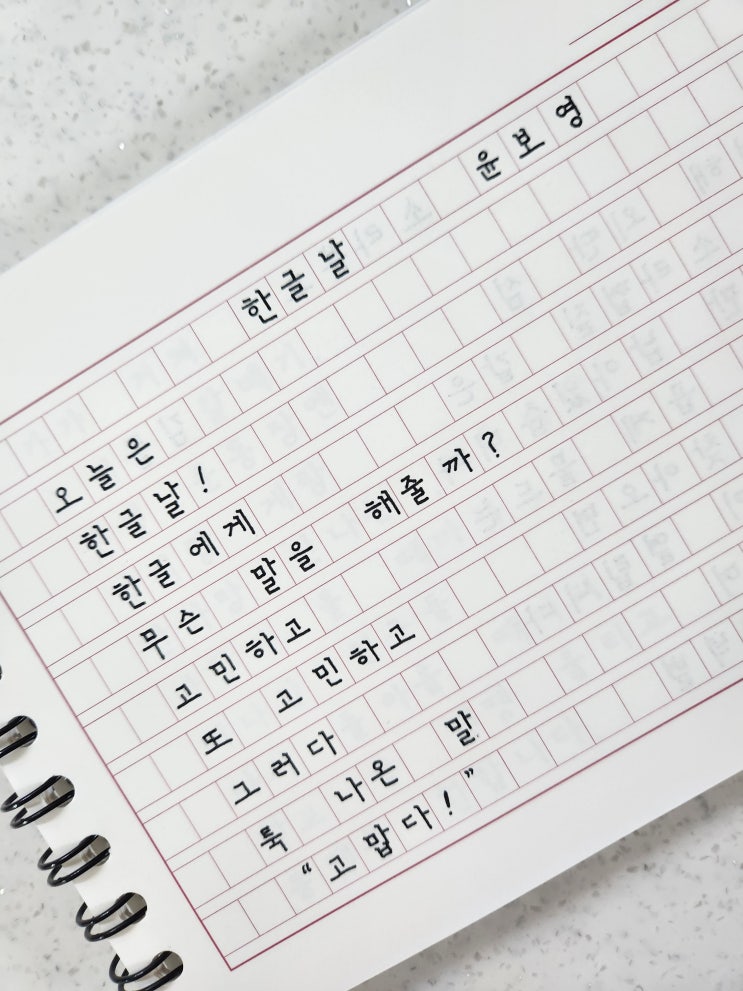 한글날 윤보영
오늘은
한글날!
한글에게
무슨 말을 해줄까?
고민하고
또 고민하고
그러다
툭 나온 말
“고맙다!”